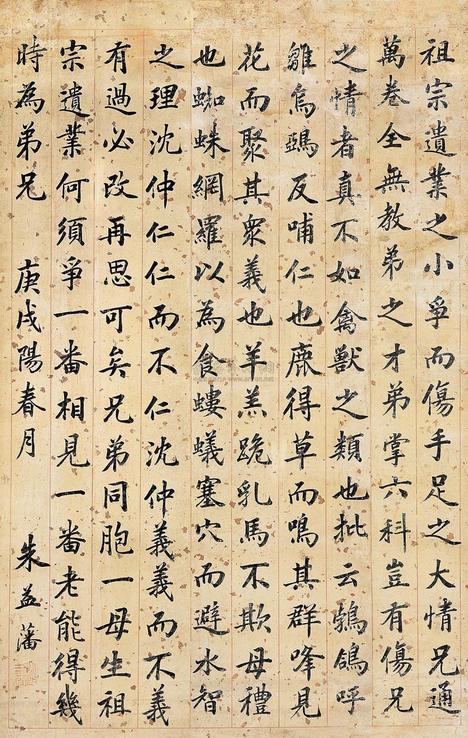 祖宗遺業之小爭而傷手足之大情兄通
萬卷全無教弟之才弟掌六科豈有傷兄
之情者真不如禽獸之類也批云鵓鴿呼
雛烏鵶反哺仁也鹿得草而鳴其群蜂見
花而聚其衆義也羊羔跪乳馬不欺母禮
也蜘蛛網羅以為食螻蟻塞穴而避水智
之理沈仲仁仁而不仁沈仲義義而不義
有過必改再思可矣兄弟同胞一母生祖
宗遺業何須爭一番相見一番老能得幾
時為弟兄 庚戌陽春月 朱益藩